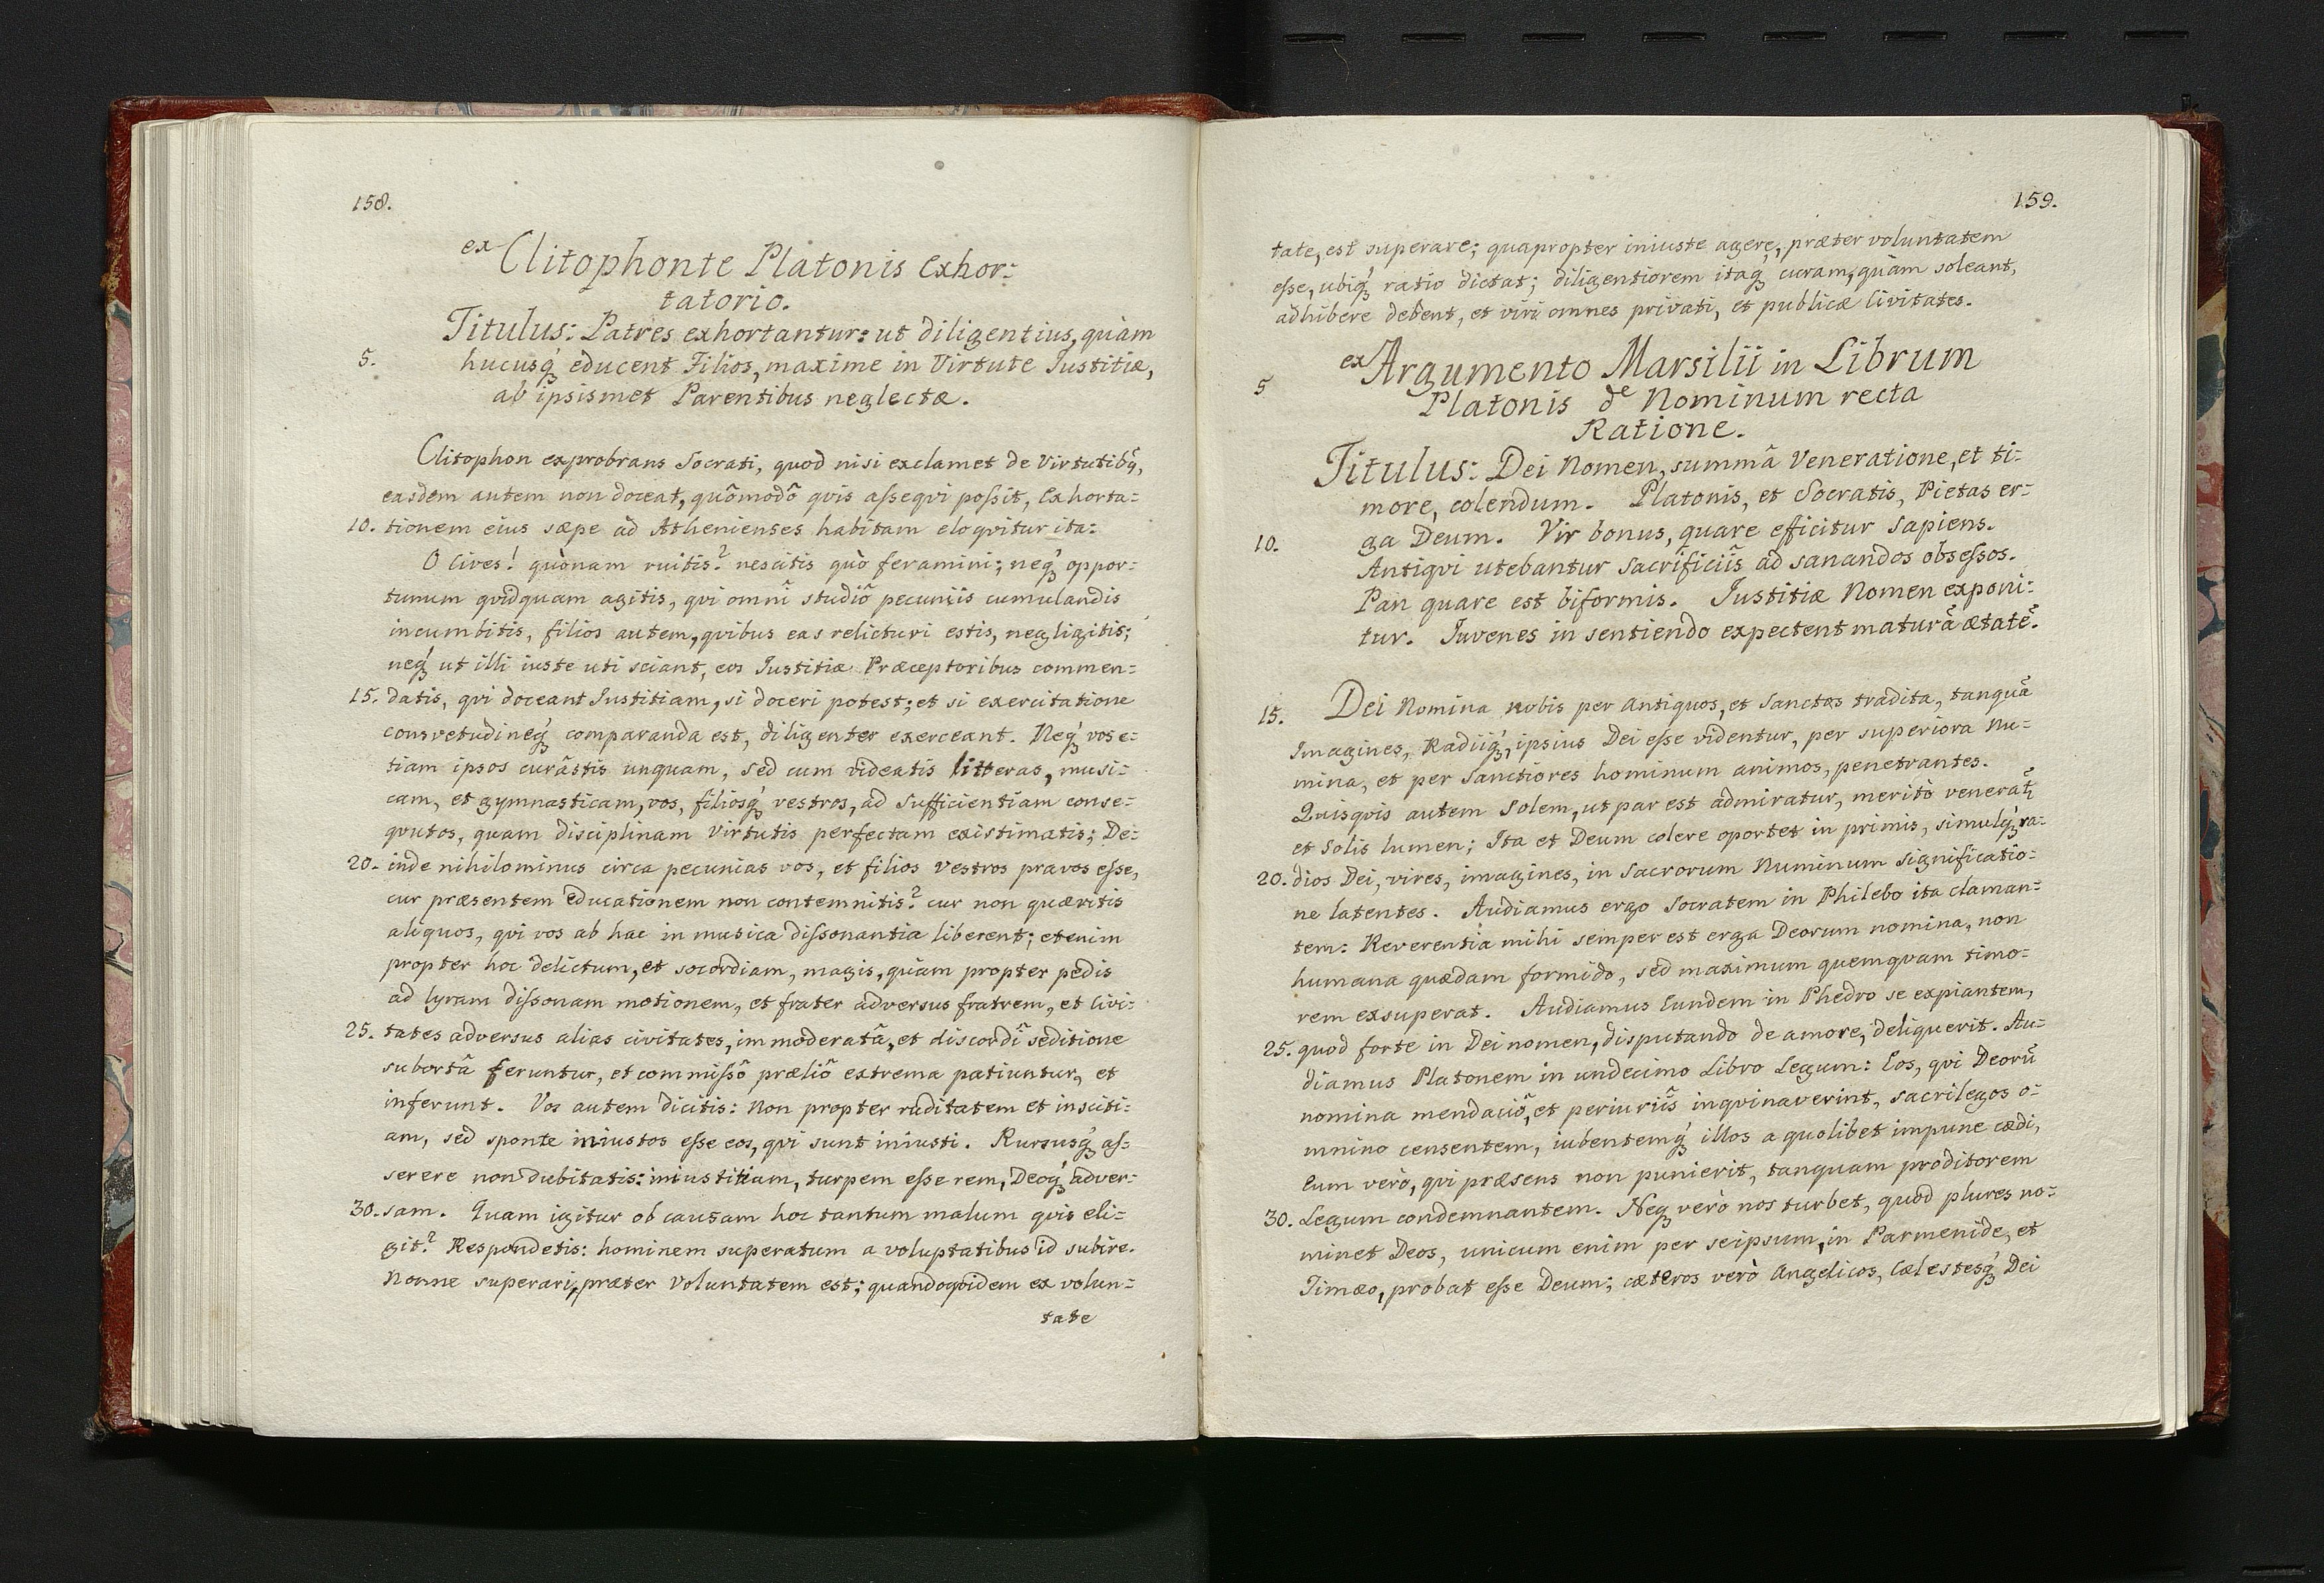 158.
ex Clitophonte Platonis Exhor:
tatorio.
Titulus: Patres exhortantur: ut diligentius, quàm
5. hucusq́ educent Filios, maxime in Virtute Justitiæ,
ab ipsismet Parentibus neglectæ.
Clitophon exprobrans Socrati, quod nisi exclamet de Virtutibq̃,
easdem autem non doceat, quômodô qvis aſseqvi poſsit, Exhorta:
10. tionem eius sæpe ad Athenienses habitam eloqvitur ita:
O Cives! quònam ruitis? nescitis quò feramini; neq́ oppor:
tunum qvidquam agitis, qvi omnî studiô pecuniis cumulandis
incumbitis, filios autem, qvibus eas relicturi estis, negligitis;
neq́ ut illi iuste uti sciant, eos Justitiæ Præceptoribus commen:
15. datis, qvi doceant Justitiam, si doceri potest; et si exercitatione
consvetudineq́ comparanda est, diligenter exerceant. Neq́ vos e:
tiam ipsos curâstis unquam, sed cum videatis litteras, musi:
cam, et gymnasticam, vos, filiosq́ vestros, ad sufficientiam conse:
qvutos, quam disciplinam Virtutis perfectam existimatis; De:
20. inde nihilominus circa pecunias vos, et filios vestros pravos eſse,
cur præsentem educationem non contemnitis? cur non quæritis
aliquos, qvi vos ab hac in musica diſsonantia liberent; etenim
propter hoc delictum, et socordiam, magis, quàm propter pedis
ad lyram diſsonam motionem, et frater adversus fratrem, et Civi:
25. tates adversus alias civitates, immoderatâ, et discordî seditione
subortâ feruntur, et commiſsô præliô extrema patiuntur, et
inferunt. Vos autem dicitis: Non propter ruditatem et insciti:
am, sed sponte iniustos eſse eos, qvi sunt iniusti. Rursusq́ aſ:
serere non dubitatis: iniustitiam, turpem eſse rem, Deoq́ adver:
30. sam. Quam igitur ob causam hoc tantum malum qvis eli:
git? Respondetis: hominem superatum a voluptatibus id subire.
Nonne superari, præter Voluntatem est; quandoqvidem ex volun:
tate
159.
tate, est superare; quapropter iniuste agere, præter voluntatem
eſse, ubiq́ ratio dictat; diligentiorem itaq curam, quàm soleant,
adhibere debent, et viri omnes privati, et publicæ Civitates.
ex Argumento Marsilii in Librum
5 Platonis de Nominum recta
Ratione.
Titulus: Dei Nomen, summâ Veneratione, et ti:
more, colendum. Platonis, et Socratis, Pietas er:
10. ga Deum. Vir bonus, quare efficitur sapiens.
Antiqvi utebantur Sacrificiis̃ ad sanandos obseſsos.
Pan quare est biformis. Justitiæ Nomen exponi:
tur. Juvenes in sentiendo expectent maturã ætatẽ.
15. Dei Nomina nobis per Antiquos, et Sanctos tradita, tanquã
Imagines, Radiiq́, ipsius Dei eſse videntur, per superiora Nu:
mina, et per Sanctiores hominum animos, penetrantes.
Quisqvis autem Solem, ut par est admiratur, meritò venerat̃
et Solis lumen; Ita et Deum colere oportet in primis, simulq́ ra:
20. dios Dei, vires, imagines, in Sacrorum Numinum significatio:
ne latentes. Audiamus ergo Socratem in Philebo ita claman:
tem: Reverentia mihi semper est erga Deorum nomina, non
humana quædam formido, sed maximum quemqvam timo:
rem exsuperat. Audiamus Eundem in Phedro se expiantem,
25. quod forte in Dei nomen, disputando de amore, deliquerit. Au:
diamus Platonem in undecimo Libro Legum: Eos, qvi Deorũ
nomina mendaciô, et periuriis̃ inqvinaverint, sacrilegos o:
mnino censentem, iubentemq́ illos a quolibet impune cædi,
Eum verò, qvi præsens non punierit, tanquam proditorem
30. Legum condemnantem. Neq verò nos turbet, quod plures no:
minet Deos, unicum enim per seipsum, in Parmenide, et
Timæo, probat eſse Deum; cæteros verò Angelicos, Cælestesq́ Dei